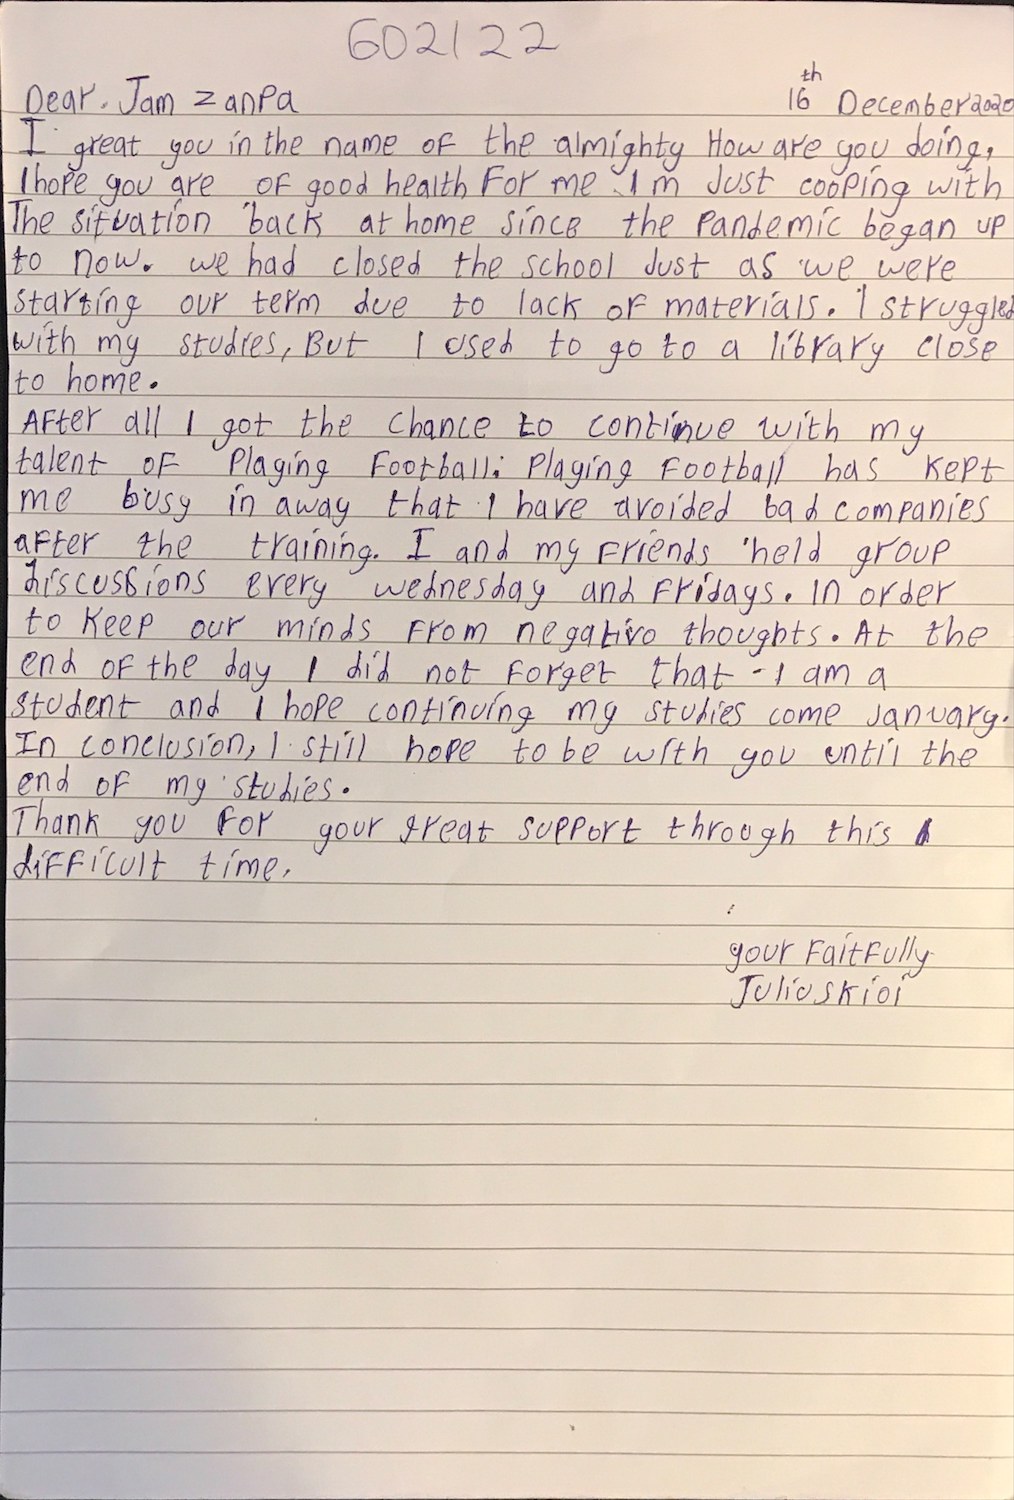 602122
Dear. Jam Zanpa 16th December 2020
I great you in the name of the almighty How are you doing,
I hope you are of good health For me I m Just cooping with
The situation back at home since the pandemic began up
to now. we had closed the school Just as we were
starting our term due to lack of materials. I struggled
with my studies, But I used to go to a library close
to home.
After all I got the chance to continue with my
talent of Playing Football. Playing Football has kept
me busy in away that I have avoided bad companies
after the training. I and my Friends held group
discussions every wednesday and Fridays. In order
to Keep our minds From negative thoughts. At the
end of the day I did not Forget that I am a
student and I hope continuing my studies come January.
In conclusion, I still hope to be with you until the
end of my studies.
Thank you For your great support through this
difficult time.
your Faitfully
Julius Kioi